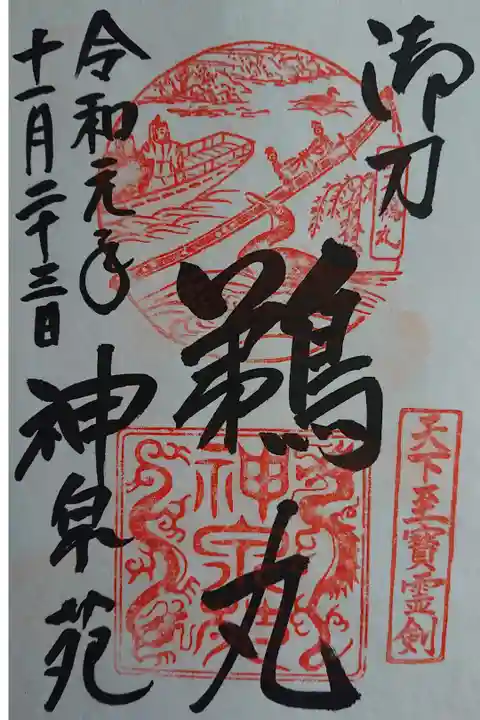 御刀
鵜丸
令和元年
十一月二十三日
神泉苑
天下至寶霊剣
鵜丸
神泉苑